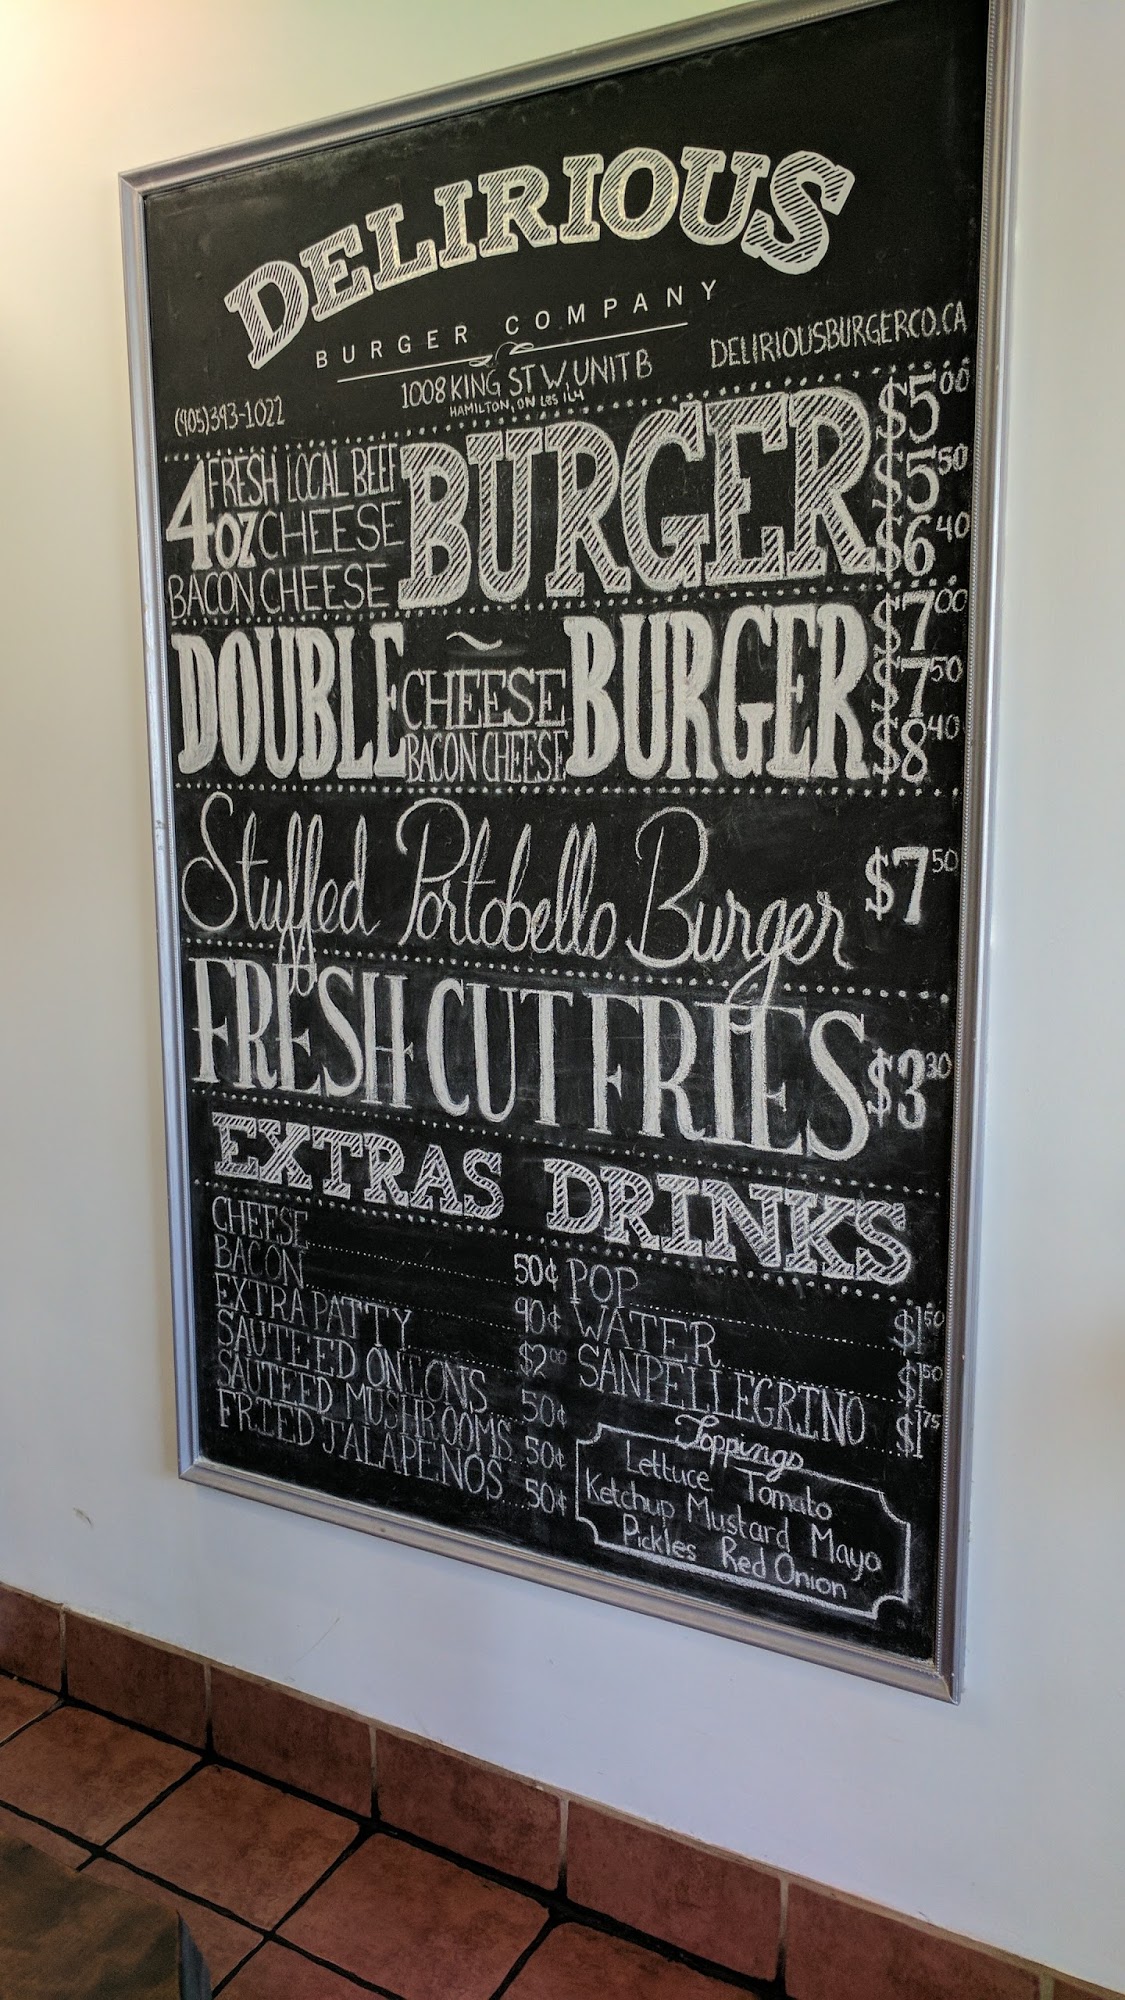 DELIRIOUS
BURGER COMPANY
DELIRIOUSBURGERCO.CA
1008 KING ST W, UNIT B
HAMILTON, ON L8S 1L4
(905)393-1022
4oz FRESH LOCAL BEEF BURGER $5.00
CHEESE $5.50
BACON CHEESE $6.40
DOUBLE ~ BURGER $7.00
CHEESE $7.50
BACON CHEESE $8.40
Stuffed Portobello Burger $7.50
FRESH CUT FRIES $3.30
EXTRAS
CHEESE 50¢
BACON 90¢
EXTRA PATTY $2.00
SAUTEED ONIONS 50¢
SAUTEED MUSHROOMS 50¢
FRIED JALAPENOS 50¢
DRINKS
POP $1.50
WATER $1.50
SANPELLEGRINO $1.75
Toppings
Lettuce Tomato
Ketchup Mustard Mayo
Pickles Red Onion